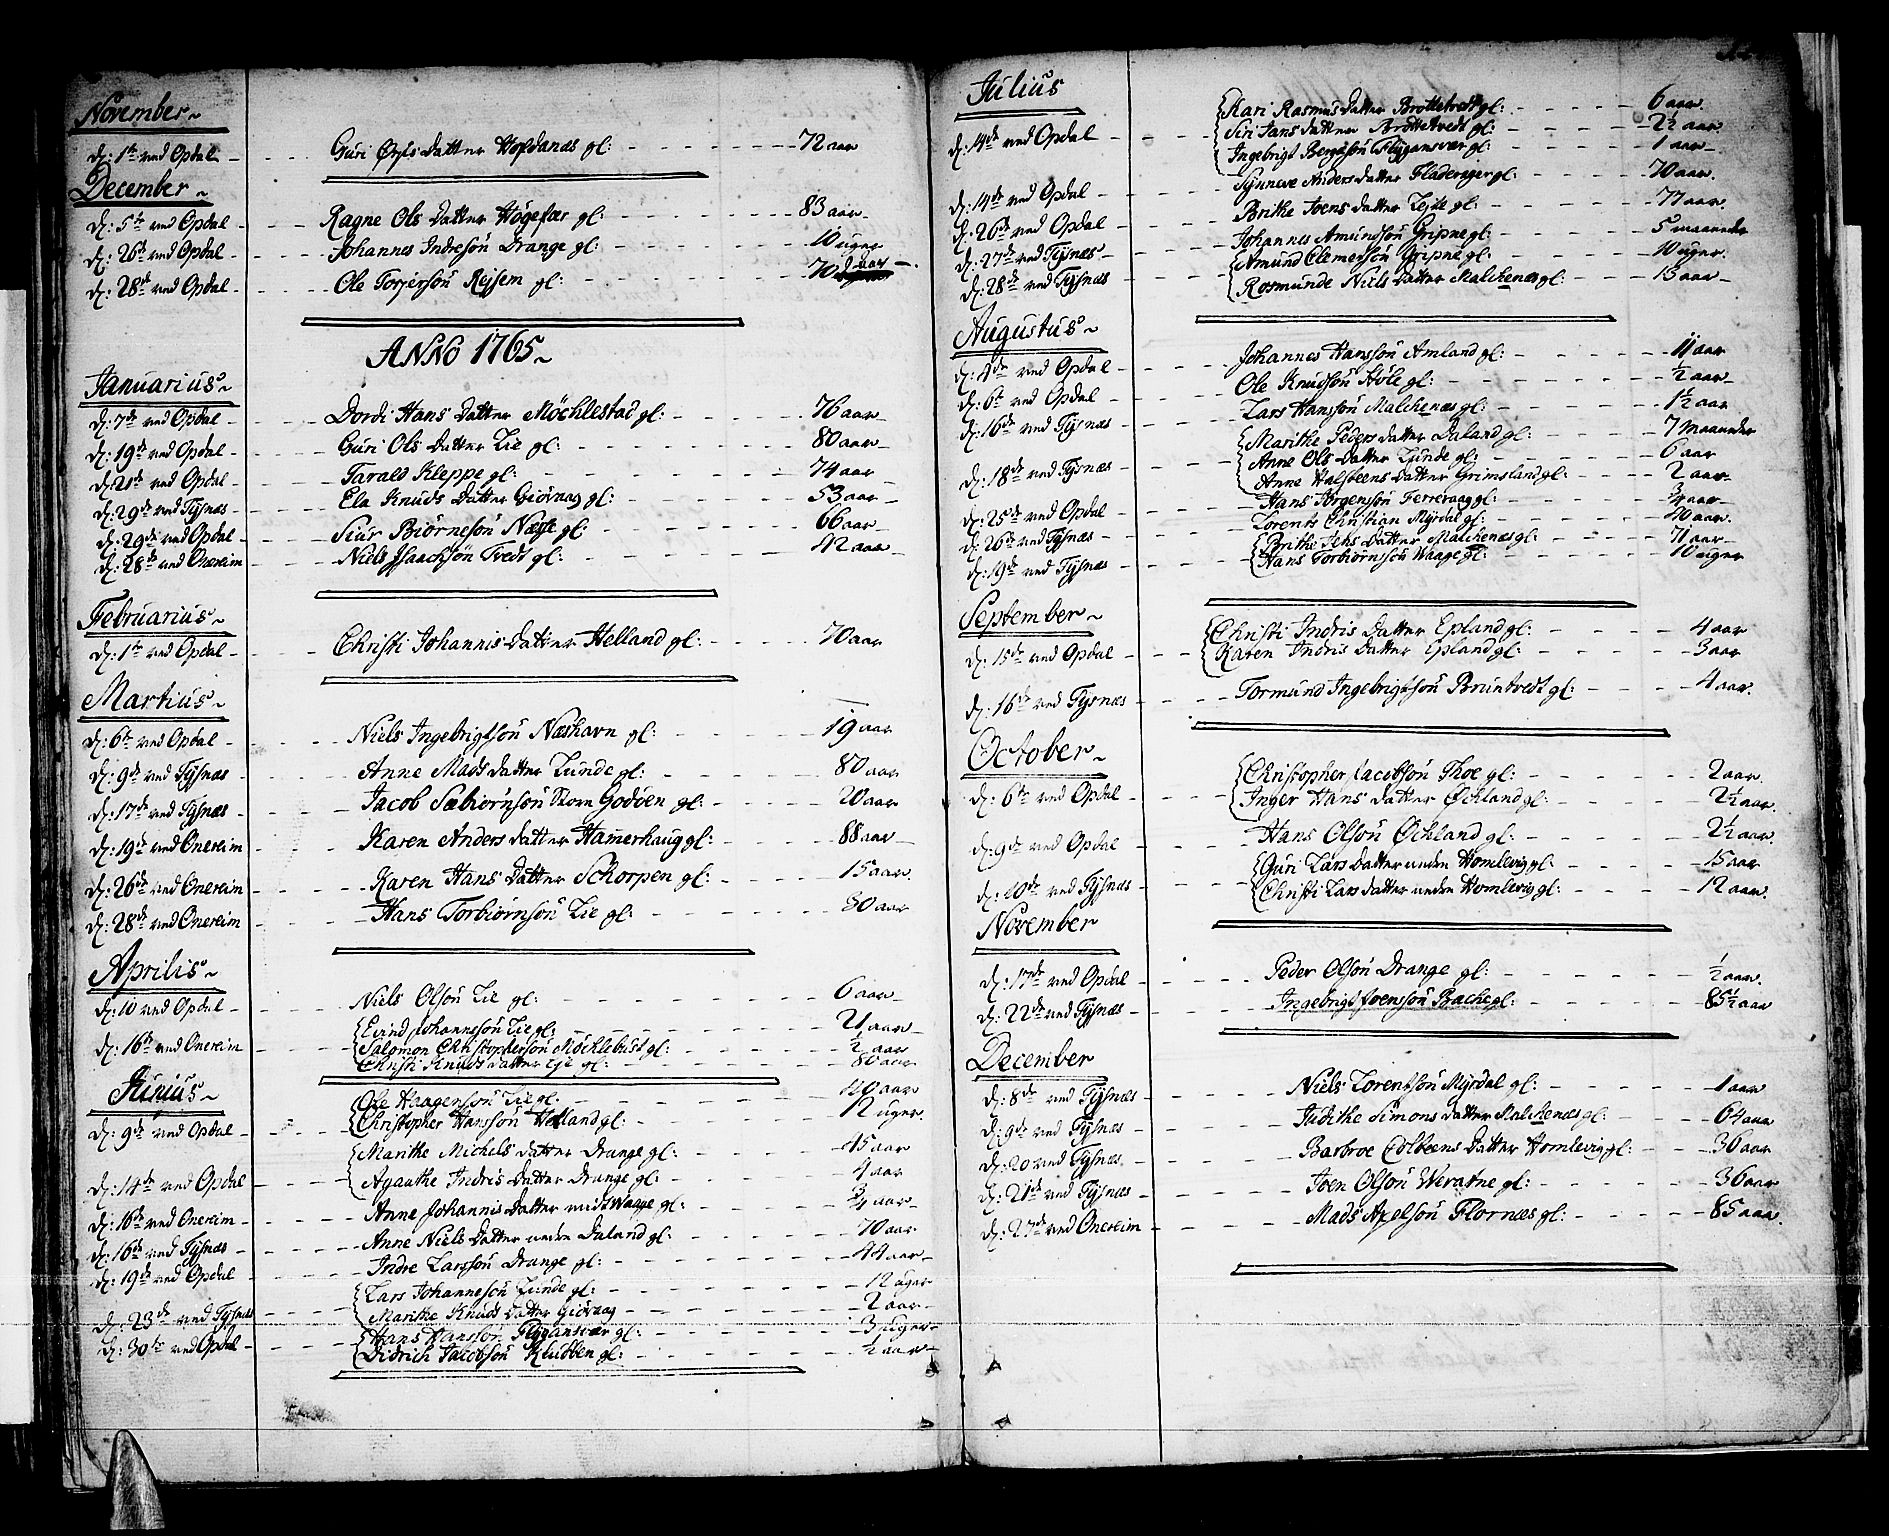 November
d: 1te ved Opdal - Guri Ols Datter Hofdanæs gl: - 72 aar
December
d: 5te ved Opdal - Ragne Ols Datter Høgefær gl: - 83 aar
d: 26de ved Opdal - Johannes Indresøn Drange gl: - 10 uger
d: 28de ved Opdal - Ole Torjersøn Rejsem gl: - 70 aar
ANNO 1765
Januarius
d: 7de ved Opdal - Dordi Hans Datter Møchlestad gl: - 76 aar
d: 19de ved Opdal - Guri Ols Datter Lie gl: - 80 aar
d: 21de ved Opdal - Tarald Kleppe gl: - 74 aar
d: 29de ved Tysnæs - Ela Knuds Datter Giøvaag gl: - 53 aar
d: 29de ved Opdal - Siur Biørnesøn Næsse gl: - 66 aar
d: 28de ved Onereim - Niels Isaachsøn Tvedt gl: - 12 aar
Februarius
d: 1te ved Opdal - Christi Johannis Datter Helland gl: - 70 aar
Martius
d: 6te ved Opdal - Niels Ingebrigtsøn Næshavn gl: - 19 aar
d: 9de ved Tysnæs - Anne Mads Datter Lunde gl: - 80 aar
d: 17de ved Tysnæs - Jacob Sæbiørnsøn Godøen gl: - 20 aar
d: 19de ved Onereim - Karen Anders Datter Hammerhaug gl: - 88 aar
d: 26de ved Onereim - Karen Hans Datter Schorpen gl: - 15 aar
d: 28de ved Onereim - Hans Torbiørnsøn Lie gl: - 30 aar
Aprilis
d: 10 ved Opdal - Niels Olsøn Lie gl: - 6 aar
Evind Johannssøn Lie gl: - 21 aar
d: 16de ved Onereim - Salomon Christophersøn Møchlebust gl: - ½ aar
Christi Knuds Datter Lie gl: - 80 aar
Junius
Ole Haagensøn Lie gl: - 40 aar
d: 9de ved Opdal - Christopher Hanssøn Helland gl: - 12 uger
Marithe Michels Datter Drange gl: - 45 aar
d: 14de ved Opdal - Agaathe Indris Datter Drange gl: - 4 aar
d: 16de ved Onereim - Anne Johannis Datter midt Waage gl: - ¾ aar
d: 16de ved Tysnæs - Anne Niels Datter neden Daland gl: - 70 aar
d: 19de ved Opdal - Indre Larssøn Drange gl: - 44 aar
Lars Johannesøn Lunde gl: - 12 uger
d: 23de ved Tysnæs - Marithe Knuds Datter Giøvaag - 2 aar
d: 30te ved Opdal - Hans Hanssøn Flygansvær gl: - 3 uger
Didrich Jacobsøn Kludben gl: - ½ aar
Julius
Kari Rasmus Datter Brottetvedt gl: - 6 aar
d: 14de ved Opdal - Siri Jans Datter Brottetvedt gl: - 2½ aar
Ingebrigt Bergesøn Flygansvær gl: - 1 aar
d: 14de ved Opdal - Synneve Anders Datter gl: - 70 aar
d: 26de ved Opdal - Brithe Joens Datter Teyte gl: - 77 aar
d: 27de ved Tysnæs - Johannes Amundsøn Gripne gl: - 5 maaneder
Amund Clemersøn Gripne gl: - 10 uger
d: 28de ved Tysnæs - Rosmunde Niels Datter Malchenæs gl: - 13 aar
Augustus
d: 4de ved Opdal - Johannes Hanssøn Amland gl: - 11 aar
d: 6te ved Opdal - Ole Knudsøn Høle gl: - ½ aar
d: 16de ved Tysnæs - Lars Hanssøn Malchenæs gl: - 1½ aar
Marithe Peders Datter Daland gl: - 7 maaneder
d: 18de ved Tysnæs - Anne Ols Datter Lunde gl: - 6 aar
Anne Halsteens Datter Grimsland gl: - 2 aar
d: 25de ved Opdal - Hans Jørgensøn Ferrevaag gl: - ¾ aar
d: 26de ved Tysnæs - Lorents Christian Myrdal gl: - 40 aar
Brithe Jens Datter Malchenæs gl: - 71 aar
d: 19de ved Tysnæs - Hans Torbiørnssøn Waage gl: - 10 uger
September
Christi Indris Datter Epland gl: - 4 aar
d: 15de ved Opdal - Karen Indris Datter Epland gl: - 3 aar
d: 16de ved Tysnæs - Tormund Ingebrigtsøn Bruntvedt gl: - 4 aar
October
Christopher Jacobsøn Thoe gl: - 2 aar
d: 6te ved Opdal - Inger Hans Datter Øchland gl: - 2½ aar
d: 9de ved Opdal - Hans Olsøn Øchland gl: - 2½ aar
Guri Lars Datter neden Homlevig gl: - 15 aar
d: 20de ved Tysnæs - Christi Lars Datter neden Homlevig gl: - 12 aar
November
d: 17de ved Opdal - Peder Olsøn Drange gl: - ½ aar
d: 22de ved Tysnæs - Ingebrigt Joensøn Bache gl: - 85½ aar
December
d: 8de ved Tysnæs - Niels Lorentsøn Myrdal gl: - 1 aar
d: 9de ved Tysnæs - Judithe Simons Datter Malchenæs gl: - 64 aar
d: 20 ved Tysnæs - Barbroe Colbeens Datter Homlevig gl: - 30 aar
d: 21de ved Tysnæs - Joen Olsøn Weratne gl: - 36 aar
d: 27de ved Onereim - Mads Axelsøn Flornæs gl: - 85 aar